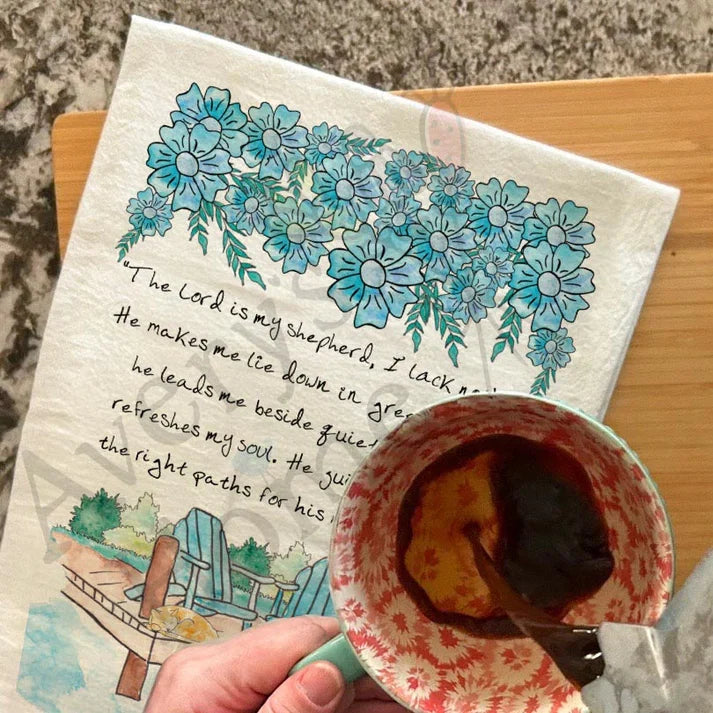 "The Lord is my shepherd, I lack
He makes me lie down in
he leads me beside
refreshes my soul. He
the right paths for his
Avery's